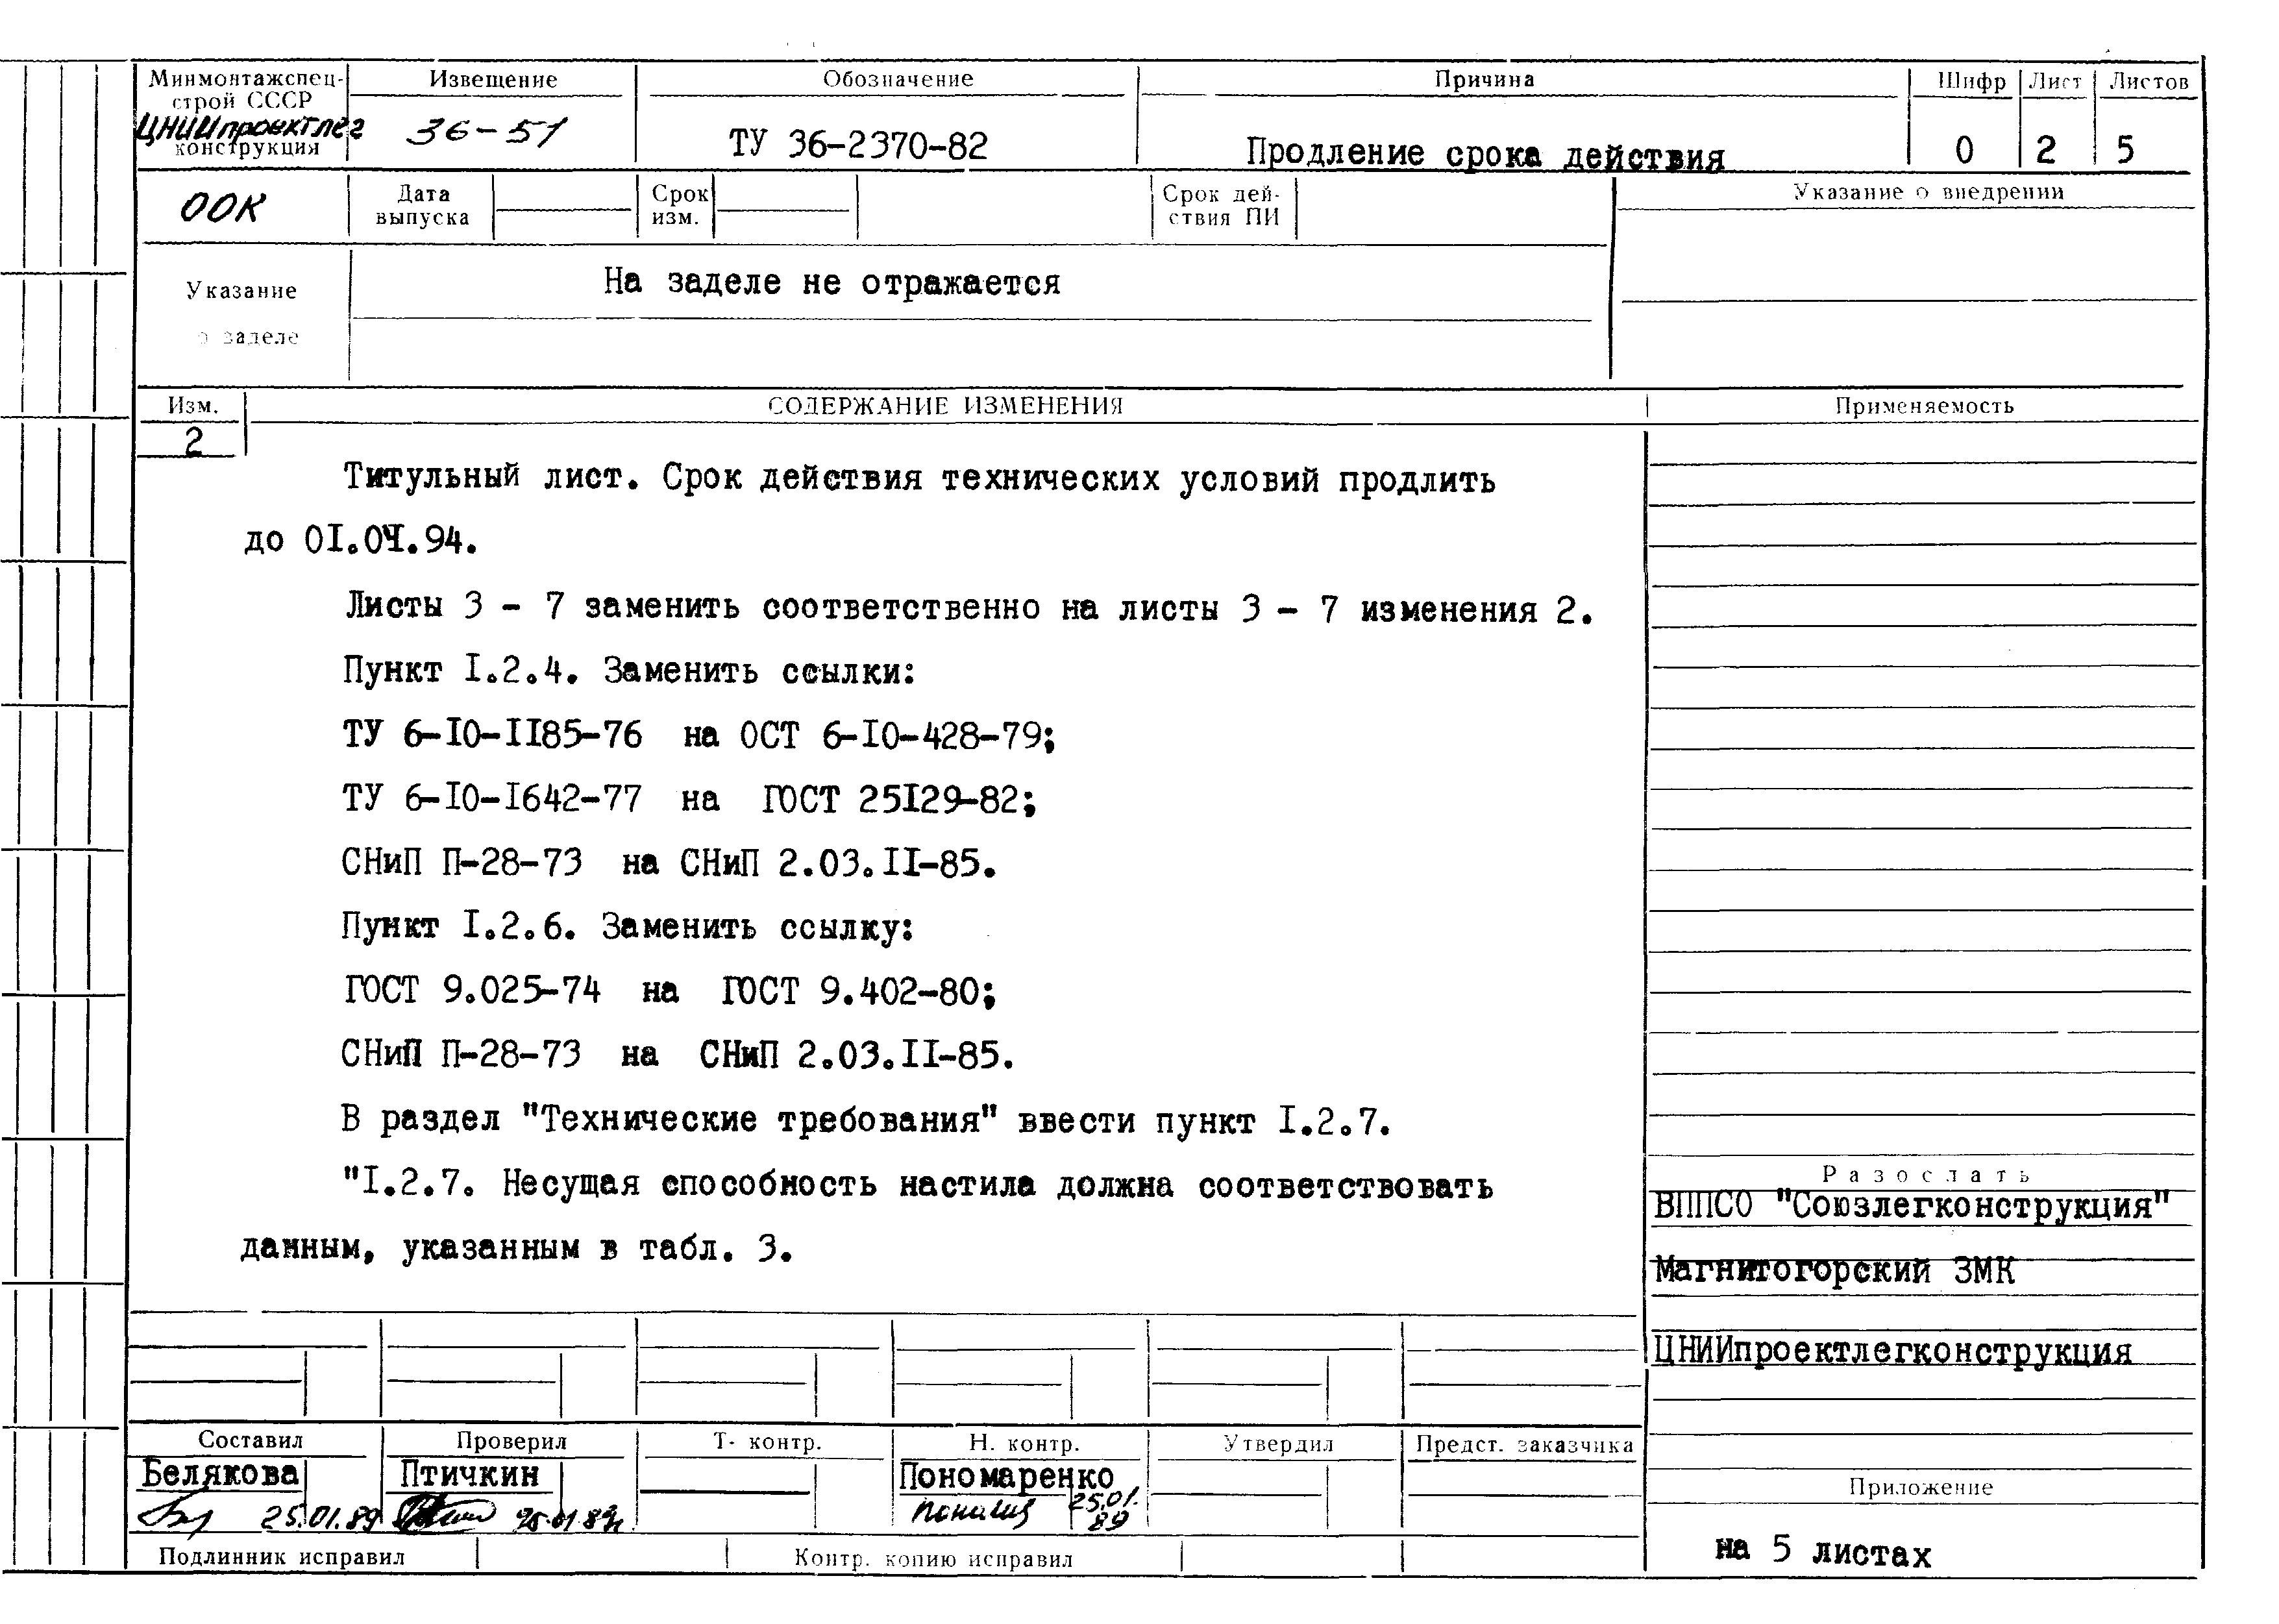 Минмонтажспец-
строй СССР
ЦНИИпроектлег
конструкция
Извещение
36-51
Обозначение
ТУ 36-2370-82
Причина
Продление срока действия
Шифр
0
Лист
2
Листов
5
ООК
Дата
выпуска
Срок
изм.
Срок дей-
ствия ПИ
Указание о внедрении
Указание
о заделе
На заделе не отражается
Изм.
2
СОДЕРЖАНИЕ ИЗМЕНЕНИЯ
Применяемость
Титульный лист. Срок действия технических условий продлить
до 0I.04.94.
Листы 3 - 7 заменить соответственно на листы 3 - 7 изменения 2.
Пункт I.2.4. Заменить ссылки:
ТУ 6-I0-II85-76 на ОСТ 6-I0-428-79;
ТУ 6-I0-I642-77 на ГОСТ 25I29-82;
СНиП П-28-73 на СНиП 2.03.II-85.
Пункт I.2.6. Заменить ссылку:
ГОСТ 9.025-74 на ГОСТ 9.402-80;
СНиП П-28-73 на СНиП 2.03.II-85.
В раздел "Технические требования" ввести пункт I.2.7.
"I.2.7. Несущая способность настила должна соответствовать
данным, указанным в табл. 3.
Разослать
ВППСО "Союзлегконструкция"
Магнитогорский ЗМК
ЦНИИпроектлегконструкция
Составил
Белякова
25.01.89
Проверил
Птичкин
Т- контр.
Н. контр.
Пономаренко
25.01.
89
Утвердил
Предст. заказчика
Приложение
на 5 листах
Подлинник исправил
Контр. копию исправил